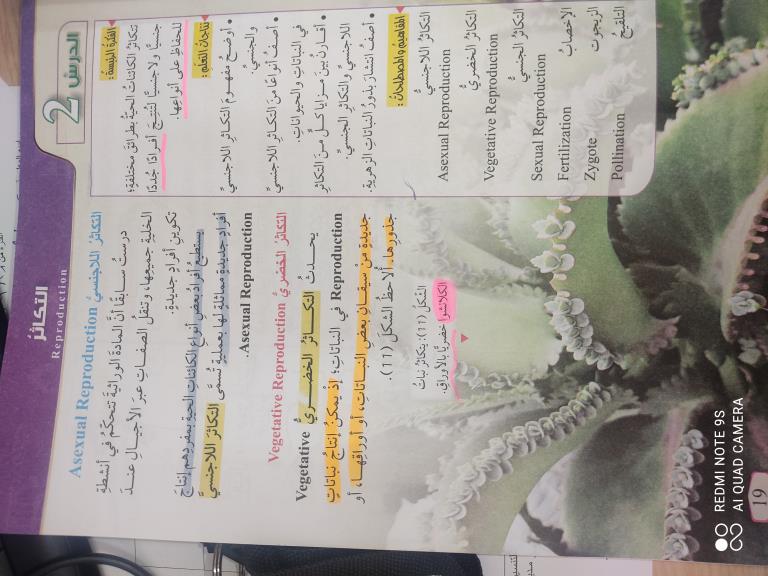 التكاثرُ
Reproduction
الدرس 2
الفكرةُ الرئيسةُ:
تتكاثرُ الكائناتُ الحيةُ بطرائقَ مختلفةٍ؛
جنسيًّا ولاجنسيًّا لتُنتِجَ أفرادًا جُدُدًا
للحفاظِ على أنواعِها.
نتاجاتُ التعلّمِ:
• أوضحُ مفهومَ التكاثرِ اللاجنسيِّ
والجنسيِّ.
• أصفُ أنواعًا منَ التكاثرِ اللاجنسيِّ
في النباتاتِ والحيواناتِ.
• أقارنُ بينَ مزايا كلٍّ منَ التكاثرِ
اللاجنسيِّ والتكاثرِ الجنسيِّ.
• أصفُ انتشارَ بذورِ النباتاتِ الزهريةِ.
المفاهيمُ والمصطلحاتُ:
التكاثرُ اللاجنسيُّ
Asexual Reproduction
التكاثرُ الخضريُّ
Vegetative Reproduction
التكاثرُ الجنسيُّ
Sexual Reproduction
الإخصابُ Fertilization
الزيجوتُ Zygote
التلقيحُ Pollination
التكاثرُ اللاجنسيُّ Asexual Reproduction
درستُ سابقًا أنَّ المادةَ الوراثيةَ تتحكّمُ في أنشطةِ
الخليةِ جميعِها، وتنقلُ الصفاتِ عبرَ الأجيالِ عندَ
تكوينِ أفرادٍ جديدةٍ.
يستطيعُ أفرادُ بعضِ أنواعِ الكائناتِ الحيةِ بمفردِهم إنتاجَ
أفرادٍ جديدةٍ مماثلةٍ لها بعمليةٍ تُسمّى التكاثرَ اللاجنسيَّ
Asexual Reproduction.
التكاثرُ الخضريُّ Vegetative Reproduction
يحدثُ التكاثرُ الخضريُّ Vegetative
Reproduction في النباتاتِ؛ إذ يمكنُ إنتاجُ نباتاتٍ
جديدةٍ من سيقانِ بعضِ النباتاتِ، أو أوراقِها، أو
جذورِها. ألاحظُ الشكلَ (11).
الشكلُ (11): يتكاثرُ نباتُ
الكلانشو خضريًّا بالأوراقِ.
19
REDMI NOTE 9S
AI QUAD CAMERA